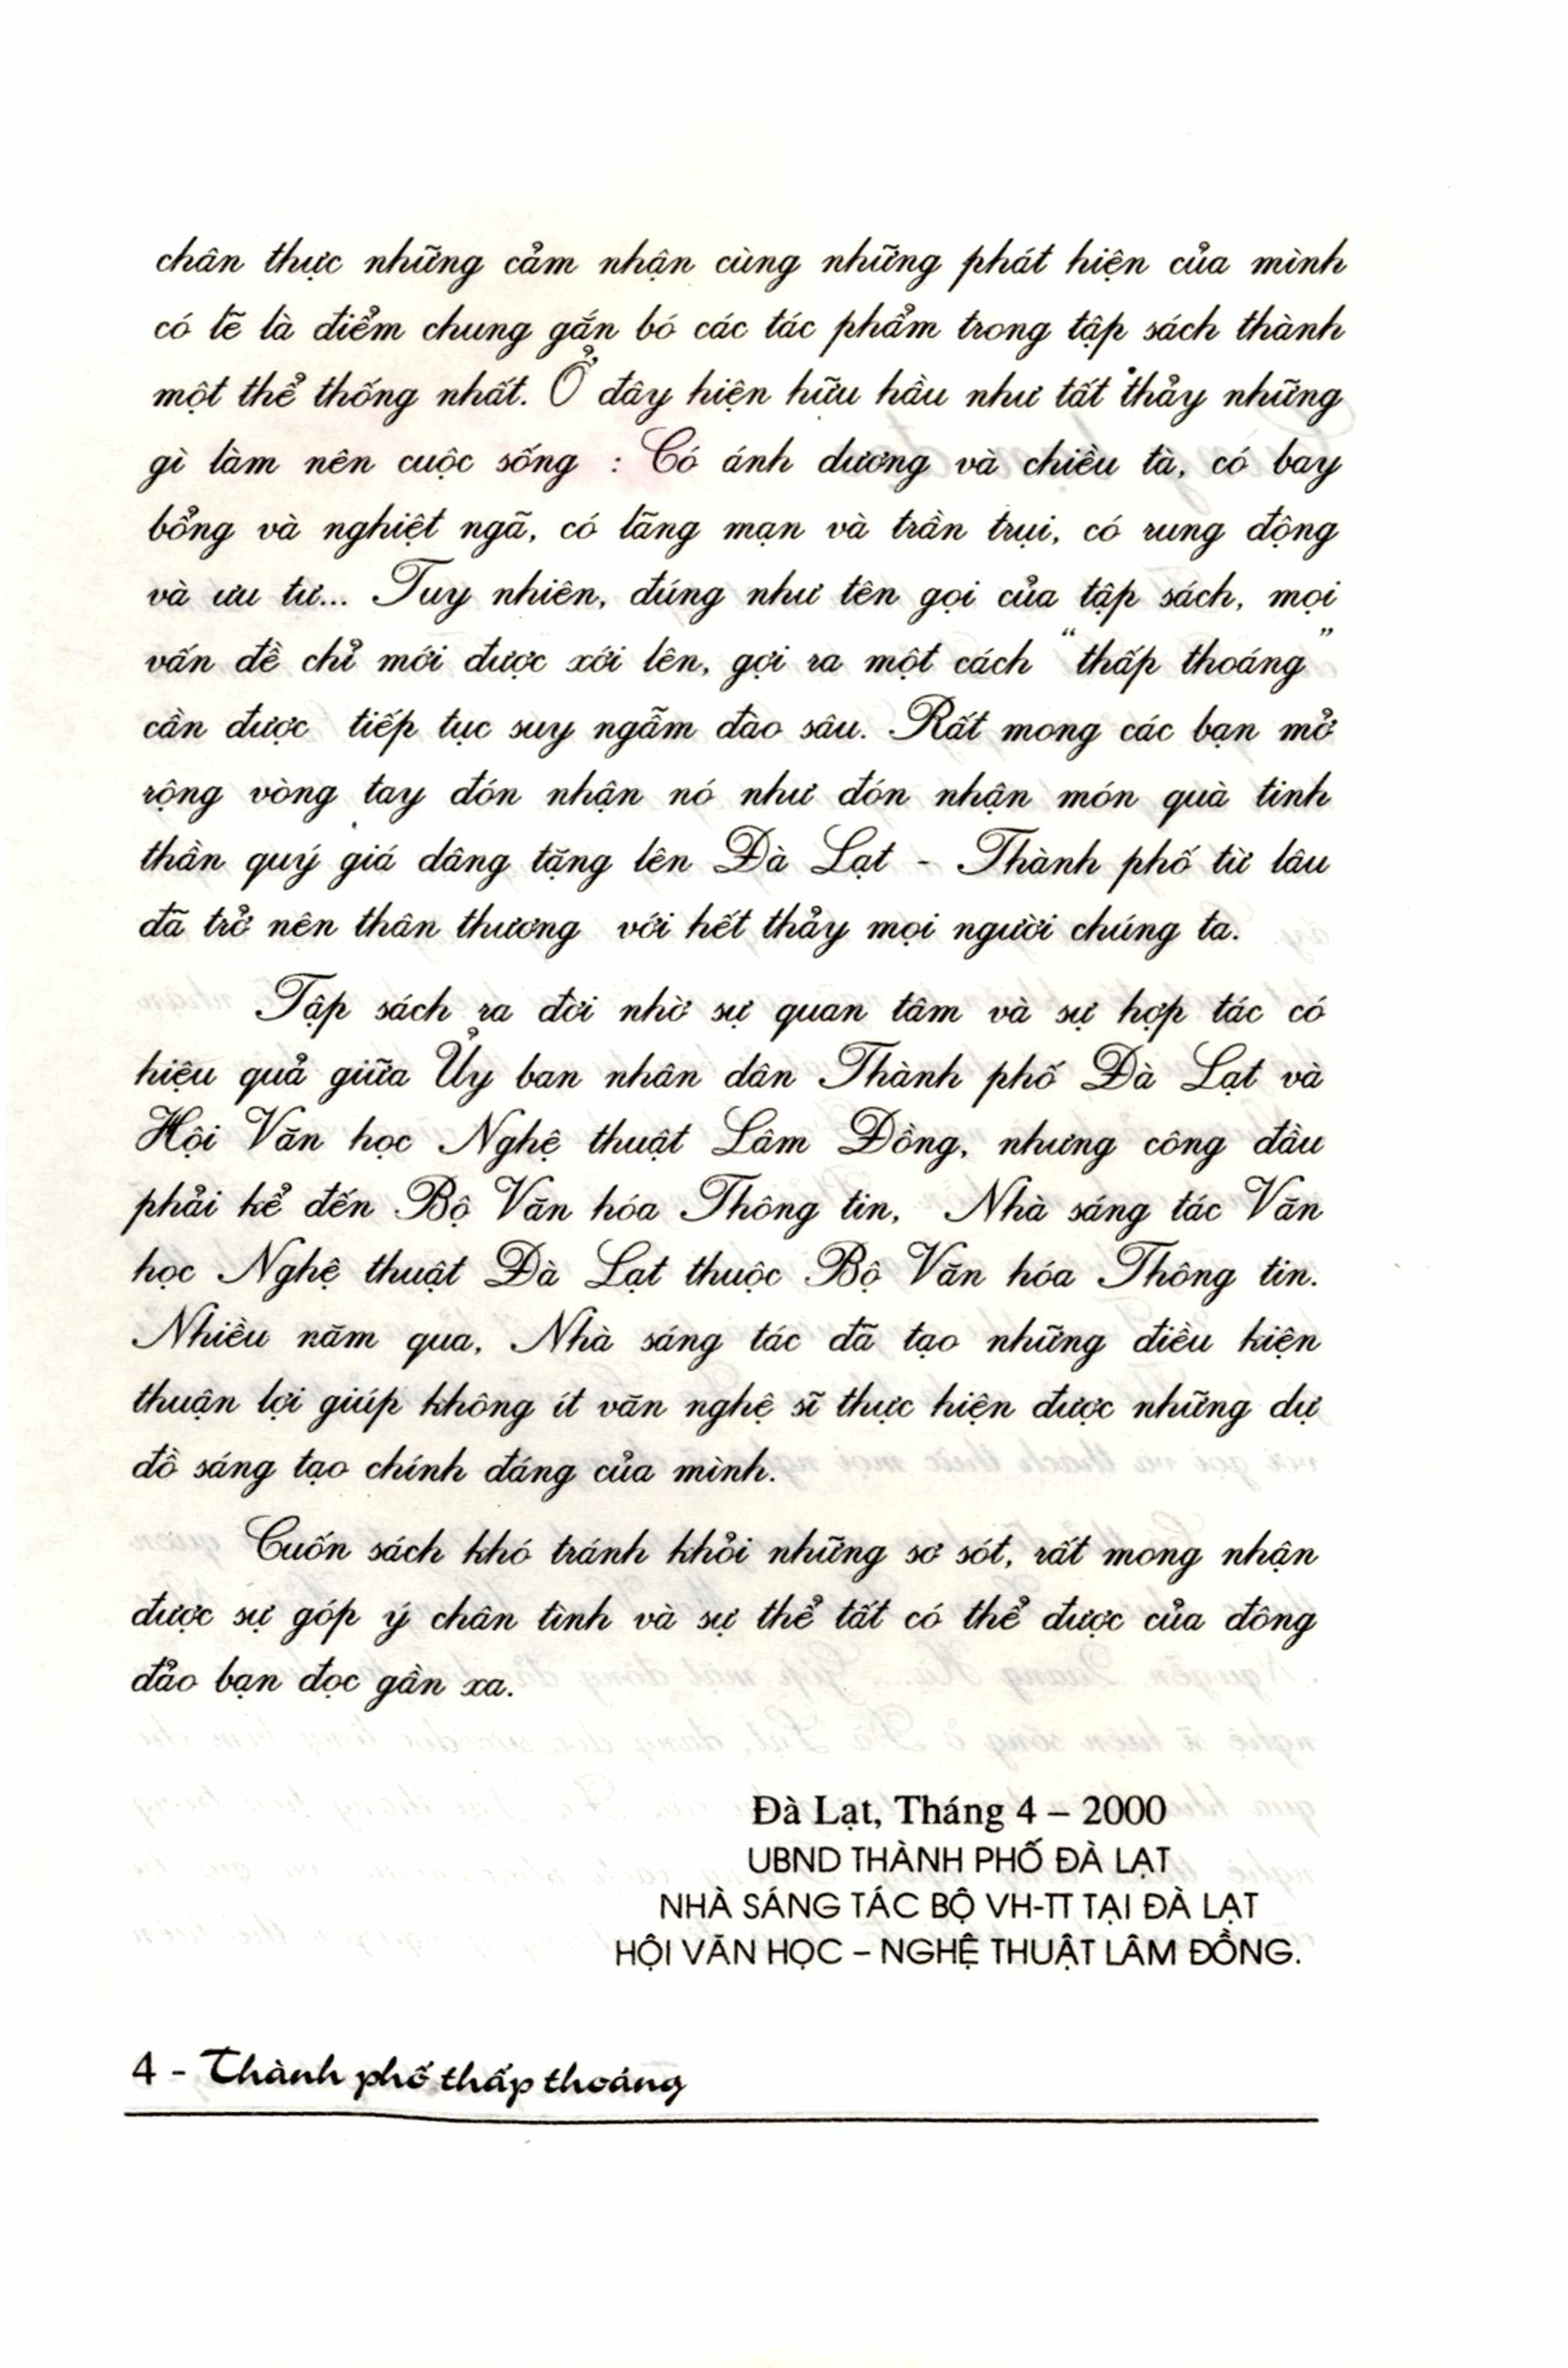 chân thực những cảm nhận cùng những phát hiện của mình
có lẽ là điểm chung gắn bó các tác phẩm trong tập sách thành
một thể thống nhất. Ở đây hiện hữu hầu như tất thảy những
gì làm nên cuộc sống : Có ánh dương và chiều tà, có bay
bổng và nghiệt ngã, có lãng mạn và trần trụi, có rung động
và ưu tư... Tuy nhiên, đúng như tên gọi của tập sách, mọi
vấn đề chỉ mới được xới lên, gợi ra một cách “thấp thoáng”
cần được tiếp tục suy ngẫm đào sâu. Rất mong các bạn mở
rộng vòng tay đón nhận nó như đón nhận món quà tinh
thần quý giá dâng tặng lên Đà Lạt - Thành phố từ lâu
đã trở nên thân thương với hết thảy mọi người chúng ta.
Tập sách ra đời nhờ sự quan tâm và sự hợp tác có
hiệu quả giữa Ủy ban nhân dân Thành phố Đà Lạt và
Hội Văn học Nghệ thuật Lâm Đồng, nhưng công đầu
phải kể đến Bộ Văn hóa Thông tin, Nhà sáng tác Văn
học Nghệ thuật Đà Lạt thuộc Bộ Văn hóa Thông tin.
Nhiều năm qua, Nhà sáng tác đã tạo những điều kiện
thuận lợi giúp không ít văn nghệ sĩ thực hiện được những dự
đồ sáng tạo chính đáng của mình.
Cuốn sách khó tránh khỏi những sơ sót, rất mong nhận
được sự góp ý chân tình và sự thể tất có thể được của đông
đảo bạn đọc gần xa.
Đà Lạt, Tháng 4 – 2000
UBND THÀNH PHỐ ĐÀ LẠT
NHÀ SÁNG TÁC BỘ VH-TT TẠI ĐÀ LẠT
HỘI VĂN HỌC – NGHỆ THUẬT LÂM ĐỒNG.
4 - Thành phố thấp thoáng